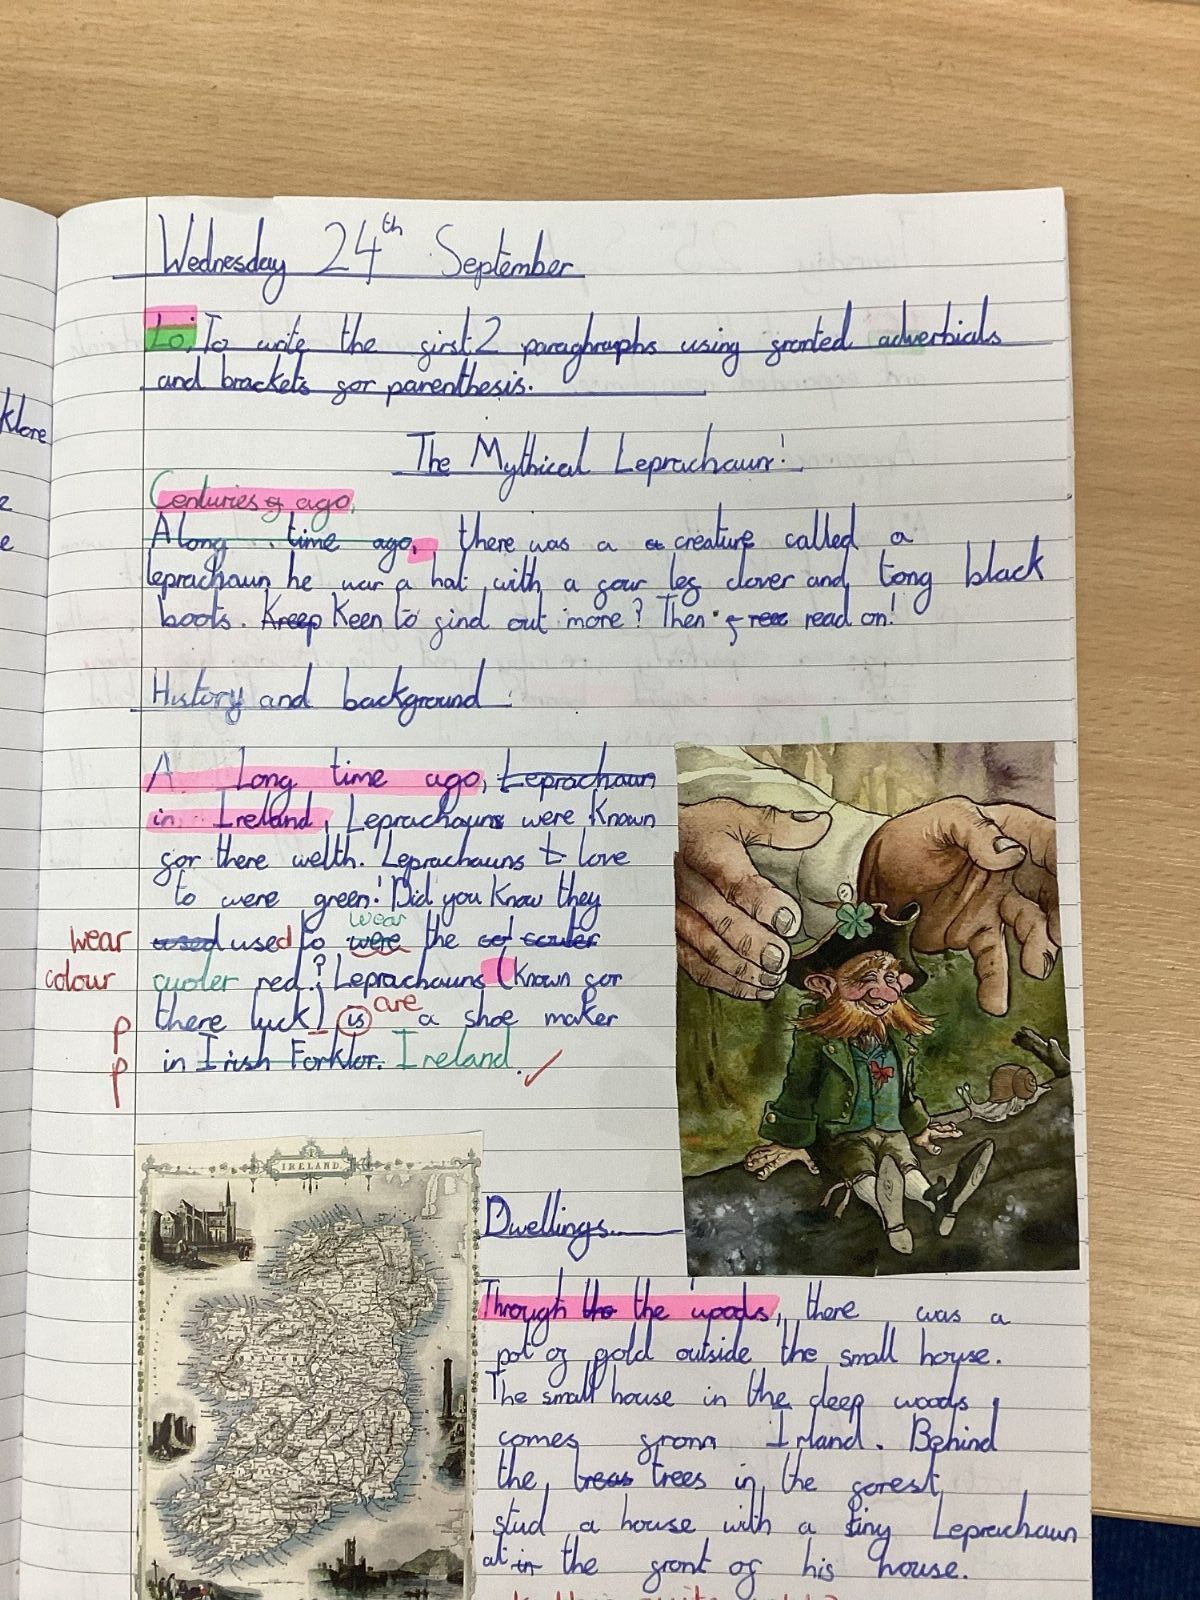 Wednesday 24th September
Lo; To write the first 2 paraghraphs using fronted adverbials
and brackets for parenthesis.
The Mythical Leprachaun!
Centuries ago,
A long time ago, there was a creature called a
leprachaun he war a hat with a four leg clover and long black
boots. Kreep Keen to find out more? Then read on!
History and background:
A Long time ago, Leprachaun
in Ireland, Leprachauns were Known
for there welth. Leprachauns love
to were green! Did you Know they
wear
wear used used to were the
colour red? Leprachauns (Known for
are
p there luck) is a shoe maker
p in Irish Forklor. Ireland.
IRELAND
Dwellings
Through the woods, there was a
pot of gold outside the small house.
The small house in the deep woods
comes from Irland. Behind
the treas trees in the forest,
stud a house with a tiny Leprachaun
at in the front of his house.
klore
e